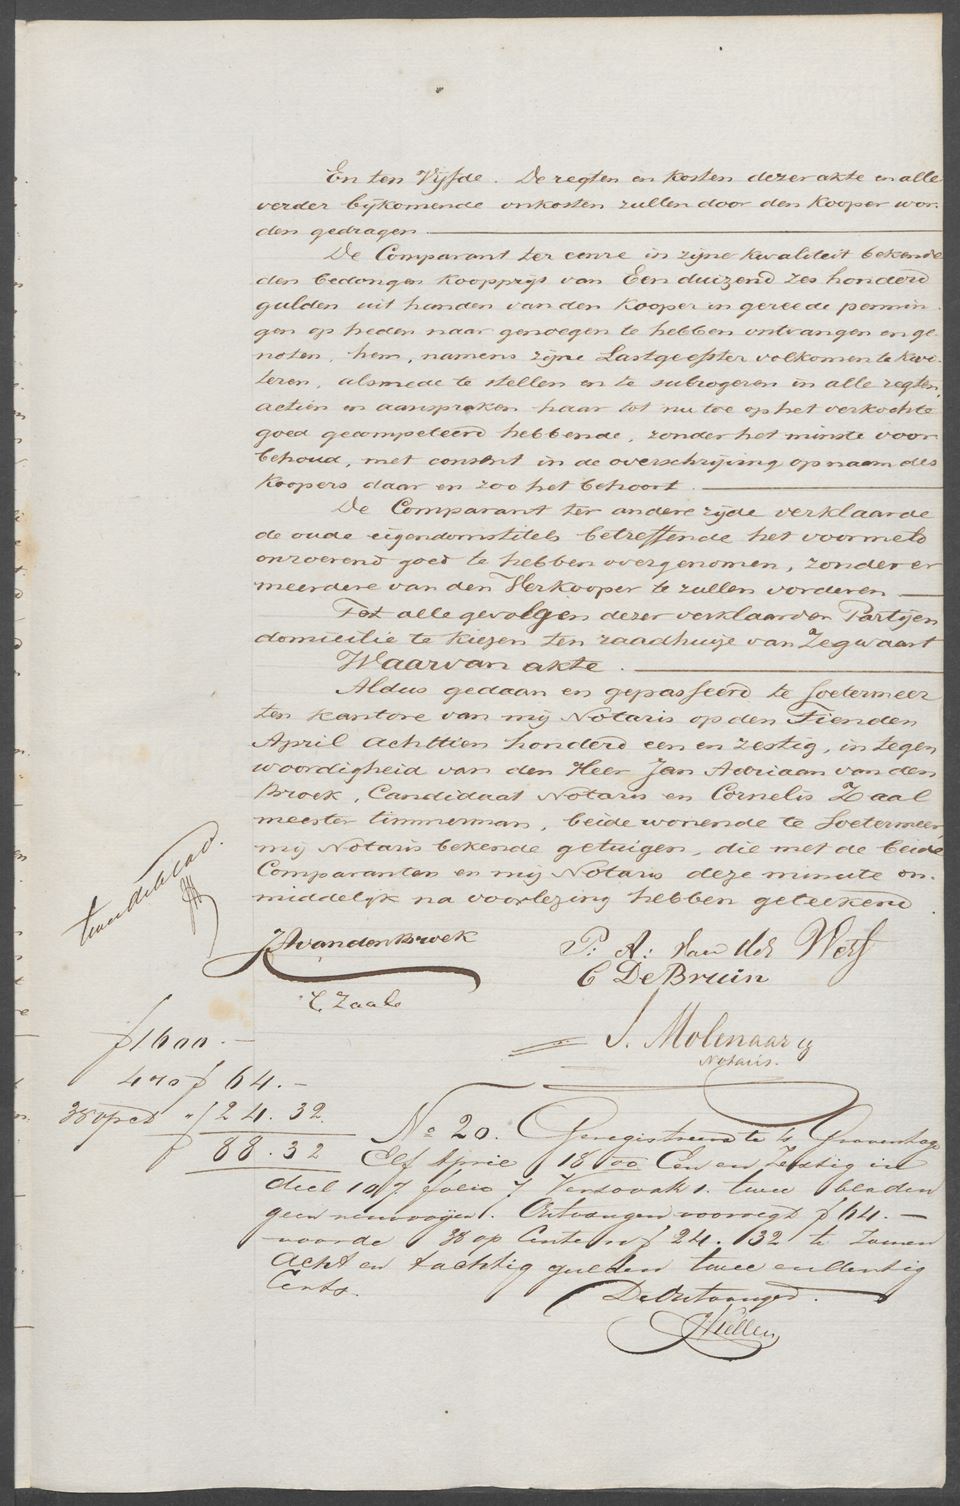 En ten Vijfde. De regten en kosten dezer akte en alle
verder bijkomende onkosten zullen door den Kooper wor-
den gedragen.
De Comparant ter eenre in zijne kwaliteit bekende
den bedongen Koopprijs van Een duizend zes honderd
gulden uit handen van den Kooper in gereede pennin-
gen op heden naar genoegen te hebben ontvangen en ge-
noten, hem, namens zijne Lastgeefster volkomen te kwi-
teren, alsmede te stellen en te subrogeren in alle regten,
actien en aanspraken haar tot nu toe op het verkochte
goed gecompeteerd hebbende, zonder het minste voor-
behoud, met consent in de overschrijving op naam des
Koopers daar en zoo het behoort.
De Comparant ter andere zijde verklaarde
de oude eigendomstitels betreffende het voormeld
onroerend goed te hebben overgenomen, zonder er
meerdere van den Verkooper te zullen vorderen
Tot alle gevolgen dezer verklaarden Partijen
domicilie te kiezen ten raadhuize van Zegwaart
Waarvan akte.
Aldus gedaan en gepasseerd te Soetermeer
ten kantore van mij Notaris op den Tienden
April achttien honderd een en zestig, in tegen
woordigheid van den Heer Jan Adriaan van den
Broek, Candidaat Notaris en Cornelis Zaal
meester timmerman, beide wonende te Soetermeer,
mij Notaris bekende getuigen, die met de beide
Comparanten en mij Notaris deze minute on-
middelijk na voorlezing hebben geteekend.
tweedeblad.
JAvandenBroek
P. A. Van der Werf
C DeBruin
C. Zaal
J. Molenaar
Notaris.
f 1600.-
4 % f 64.-
38 opct " f 24.32
f 88.32
No 20. Geregistreerd te 's Gravenhage
Elf April 1800 Een en Zestig in
deel 107 folio 7 Verso vak 1. twee bladen
geen renvooijen. Ontvangen voor regt f 64.-
voor de 38 op Centen f 24.32 te zamen
Acht en tachtig gulden twee en dertig
Cents.
De Ontvanger.